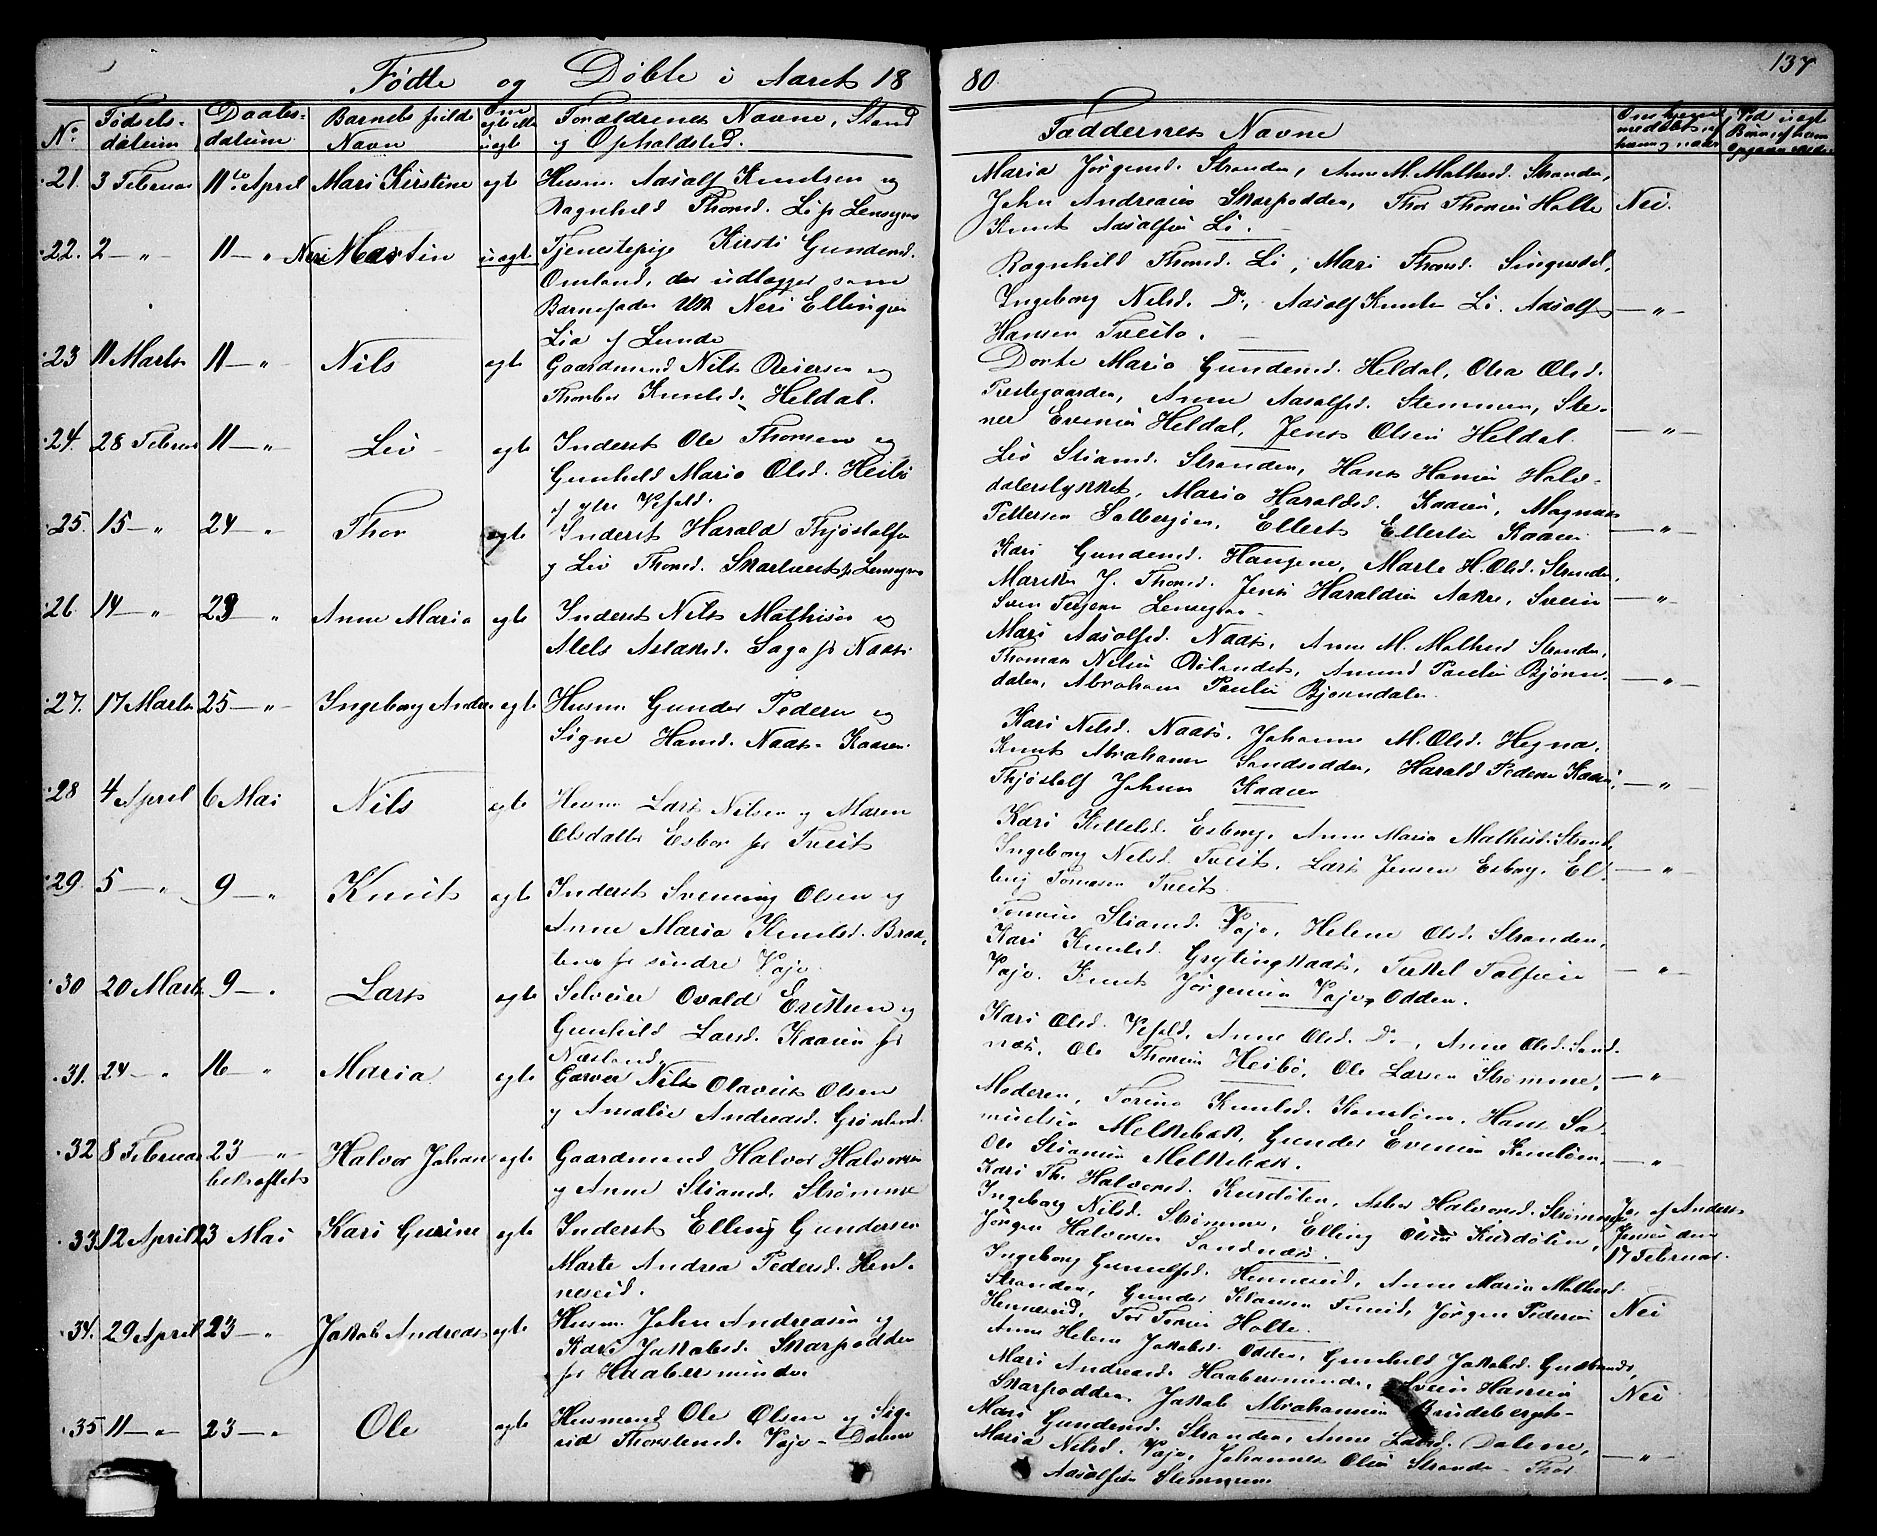 Fødte og Døbte i Aaret 1880. 137
No Fødsels-datum Daabs-datum Barnets fulde Navn Om egte ell. uegte Forældrenes Navne, Stand og Opholdsted. Faddernes Navne
21. 3 Februar 11te April Mari Kirstine egte Husm. Aasolf Knudsen og
Ragnhild Thorsd. Li
Maria Jørgensd. Stranden, Anne M. Mathisd. Stranden,
John Andreasen Skarpodden, Thor Thorsen Holte Nei.
Knut Aasolfsen Li.
22. 2 — " — 11 — " Neri Martin uegte Tjenestepige Kirsti Gundersd.
Omland, der udlægger som
Barnefader Neri Ellingsen
Lia f Lunde
Ragnhild Thorsd. Li, Mari Thorsd.
Ingeborg Nilsd. Do, Aasolf Knudsen Li, Aasolf — " —
Hansen Tveito.
23 11 Marts 11 — " Nils egte Gaardmand Nils Reiersen og
Thorbor Knudsd. Heldal.
Dorte Maria Gundersd. Heldal, Olea Olsd.
Prestegaarden, Anne Aasolfsd. Stemmen, Ste-
ner Evensen Heldal, Jens Olsen Heldal. — " —
24. 28 Februar 11 — " — Liv egte Inderst Ole Thomsen og
Gunhild Maria Olsd. Heibø
f ytre Vefald.
Liv Stiansd. Stranden, Hans Hansen Halv-
dalerstykket, Maria Haraldsd. Kaasen, Magnus
Pettersen Solbergøen, Ellert Ellertsen Kaasen — " —
25. 15 — " 24 — " Thor egte Inderst Harald Thjøstolfsen
og Liv Thorsd.
Kari Gundersd. Haugene, Marte H. Olsd. Stranden,
Jens Haraldsen Aakre, Svein — " —
26 14 — " 23 " Anne Maria egte Inderst Nils Mathisen og
Alels Aslaksd. Saga fr Naas
Mari Aasolfsd. Naas, Anne M. Mathisd. Stranden,
Thomas Nilsen Rolandet, Amund Paulsen Bjønn-
dalen, Abraham Paulsen Bjønndalen. — " —
27. 17 Marts 25 — " — Ingeborg Andrea egte Husm Gunder Pedersen og
Signe Hansd. Naas-Kaasen.
Kari Nilsd. Naas, Johanne M. Olsd. Hegna,
Knut Abrahamsen Sandsodden, Harald Pedersen Kaasen, — " —
Thjøstolf Johnsen Kaasen
28 4 April 6 Mai Nils egte Husm Lars Nilsen og Maren
Olsdatter Esbor fr Tveit
Kari Kittelsd. Esborg, Anne Maria Mathisd. Strand.
Ingeborg Nilsd. Tveit, Lars Jensen Esborg, El- — " —
ling Tomasen Tveit.
29. 5 — " 9 — " Knut egte Inderst Svenning Olsen og
Anne Maria Knudsd.
fr søndre Vaje
Stiansd. Vaje, Helene Olsd. Stranden,
Kari Knudsd. Grytingskaas, Terkel — " —
Vaje, Knut Jørgensen Vaje-Odden.
30 20 Marts 9 — " Lars egte Selveier Ovald Eriksen og
Gunhild Larsd. Kaasen fr
Næsland.
Kari Olsd. Vefald, Anne Olsd. Do —, Anne Olsd. Sand-
næs, Ole Thomsen Heibø, Ole Larsen Strømme, — " —
31. 24 — " 16 — " Maria egte Garver Nils Olavus Olsen
og Amalie Andreasd. Grønland.
Moderen, Torine Knudsd. Hans Sa-
muelsen Melkebæk, Gunder Evensen
Ole Stiansen Melkebæk. — " —
32 8 Februar 23 — " — Halvor Johan egte Gaardmand Halvor Halvorsen
bekræftets og Anne Stiansd. Strømme
Kari Th. Halvorsd. Kursdølen, Halvorsd. Strømme, Ja, af Anders
Ingeborg Nilsd. Strømme, Elling Olsen Kursdølen, Jensen den
Jørgen Halvorsen Sandnæs. 17 Februar.
33. 12 April 23 Mai Kari Gurine egte Inderst Elling Gundersen
Marte Andrea Pedersd. Hen-
neseid.
Ingeborg Henneseid, Anne Maria Mathisd.
Stranden, Gunder Klausen Jørgen Pedersen Nei
Henneseid, Tor Holte.
34. 29 April 23 — " Jakob Andreas egte Husm. John Andreasen og
Kari Jakobsd. Skarpodden
fr Haabersminde.
Anne Helene Jakobsd. Odden, Gunhild Jakobsd.
Mari Andreasd. Haabersminde, Svein Hansen Nei
Skarpodden, Jakob Abrahamsen
35 11 — " — 23 — " Ole egte Husmand Ole Olsen og Sig-
rid Thorstensd. Vaje-Dalene
Mari Gundersd. Stranden, Anne Larsd. Dalene,
Maria Nilsd. Vaje, Johannes Olsen Stranden Thor — " —
Aasolfsen Stemmen